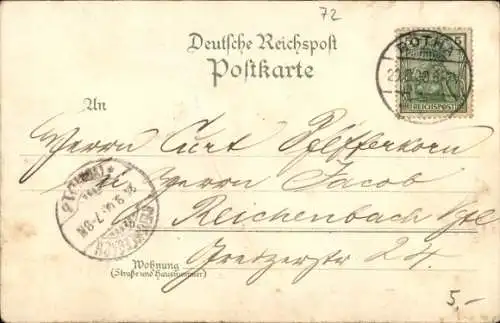 72
Deutsche Reichspost
Postkarte
GOTHA
5
REICHSPOST
An
Herrn Curt Pfefferkorn
bei Herrn Jacob
Reichenbach Vgl.
24.
Wohnung
(Straße und Hausnummer)
REICHENBACH
5,-